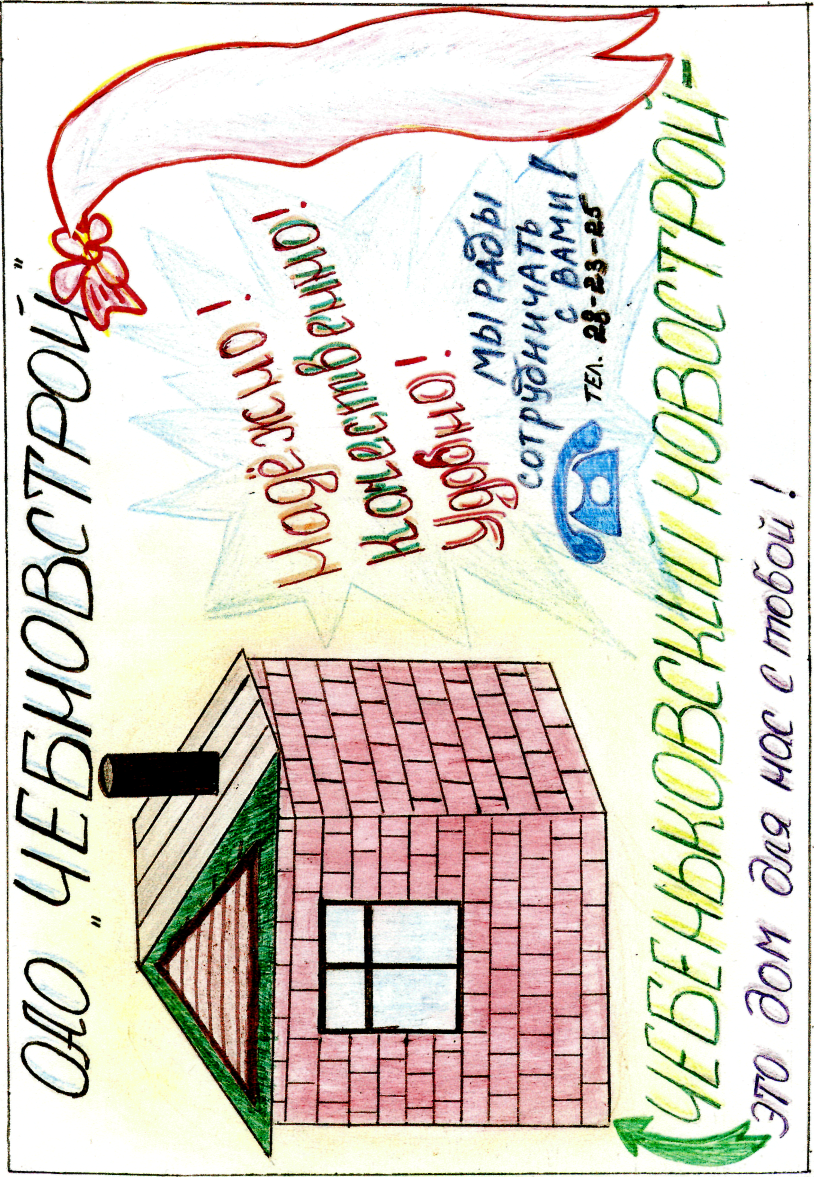 ОАО „ЧЕБНОВСТРОЙ"
Надёжно!
Качественно!
Удобно!
МЫ РАДЫ
СОТРУДНИЧАТЬ
С ВАМИ!
ТЕЛ. 28-23-25
ЧЕБЕНЬКОВСКИЙ НОВОСТРОЙ-
ЭТО ДОМ для нас с тобой!